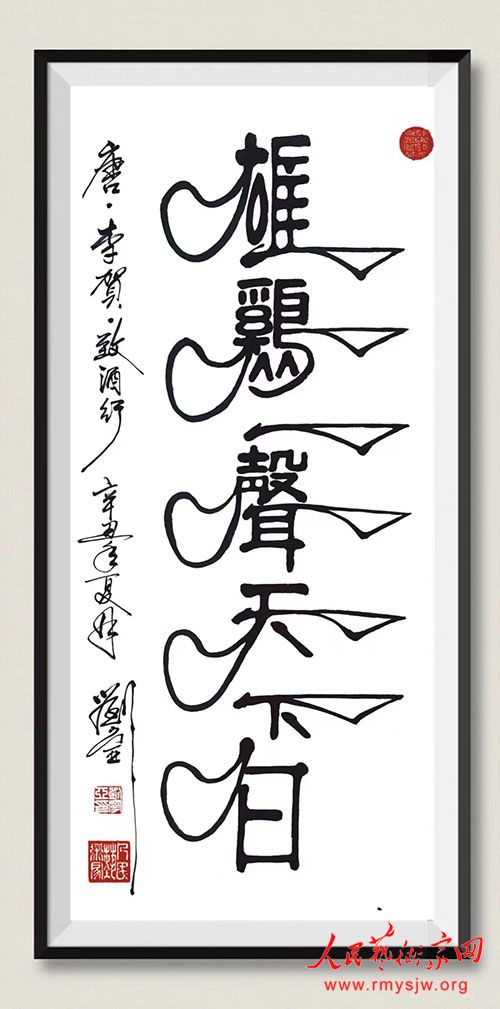 雄鷄一聲天下白
唐·李賀·致酒行 辛丑年夏
人民藝術家网
www.rmysjw.org